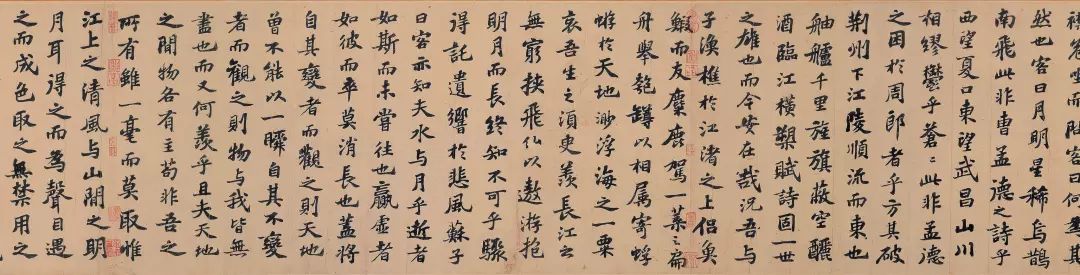 襟危坐而問客曰何為其
然也客曰月明星稀烏鵲
南飛此非曹孟德之詩乎
西望夏口東望武昌山川
相繆鬱乎蒼〻此非孟德
之困於周郎者乎方其破
荆州下江陵順流而東也
舳艫千里旌旗蔽空釃
酒臨江橫槊賦詩固一世
之雄也而今安在哉況吾与
子漁樵於江渚之上侶魚
鰕而友麋鹿駕一葉之扁
舟舉匏罇以相属寄蜉
蝣於天地渺浮海之一粟
哀吾生之須臾羨長江之
無窮挾飛仙以遨遊抱
明月而長終知不可乎驟
得託遺響於悲風蘇子
曰客亦知夫水与月乎逝者
如斯而未嘗往也贏虛者
如彼而卒莫消長也蓋將
自其變者而觀之則天地
曾不能以一瞬自其不變
者而觀之則物与我皆無
盡也而又何羨乎且夫天地
之間物各有主苟非吾之
所有雖一毫而莫取惟
江上之清風与山間之明
月耳得之而為聲目遇
之而成色取之無禁用之